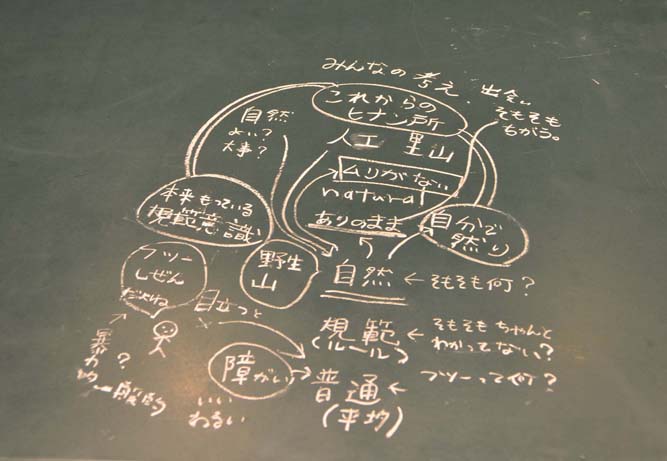 みんなの考え、出会い
これからの
ヒナン所
そもそも
ちがう。
自然
よい?
大事?
人工 里山
ムリがない
natural
ありのまま
本来もっている
規範意識
自分で
然り
フツー
しぜん
だよね
野生
山
自然 ← そもそも何?
目立つと
規範 ← そもそもちゃんと
(ルール) わかってない?
暴力的
?
一般的
障がい
普通 ← フツーって何?
(平均)
いい
わるい